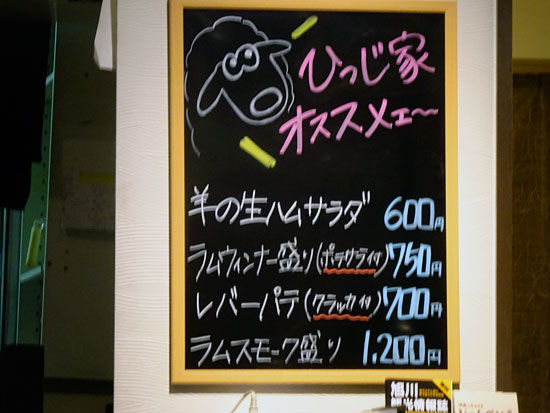 ひつじ家
オススメェ〜
羊の生ハムサラダ 600円
ラムウィンナー盛り(ポテサラ付)750円
レバーパテ(クラッカー付)700円
ラムスモーク盛り 1,200円
旭川
観光情報誌